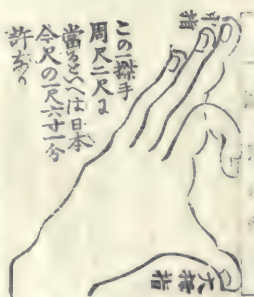 中指
この搩手
周尺二尺に
當るといへは日本
今尺の一尺六寸一分
許なり
大擔指